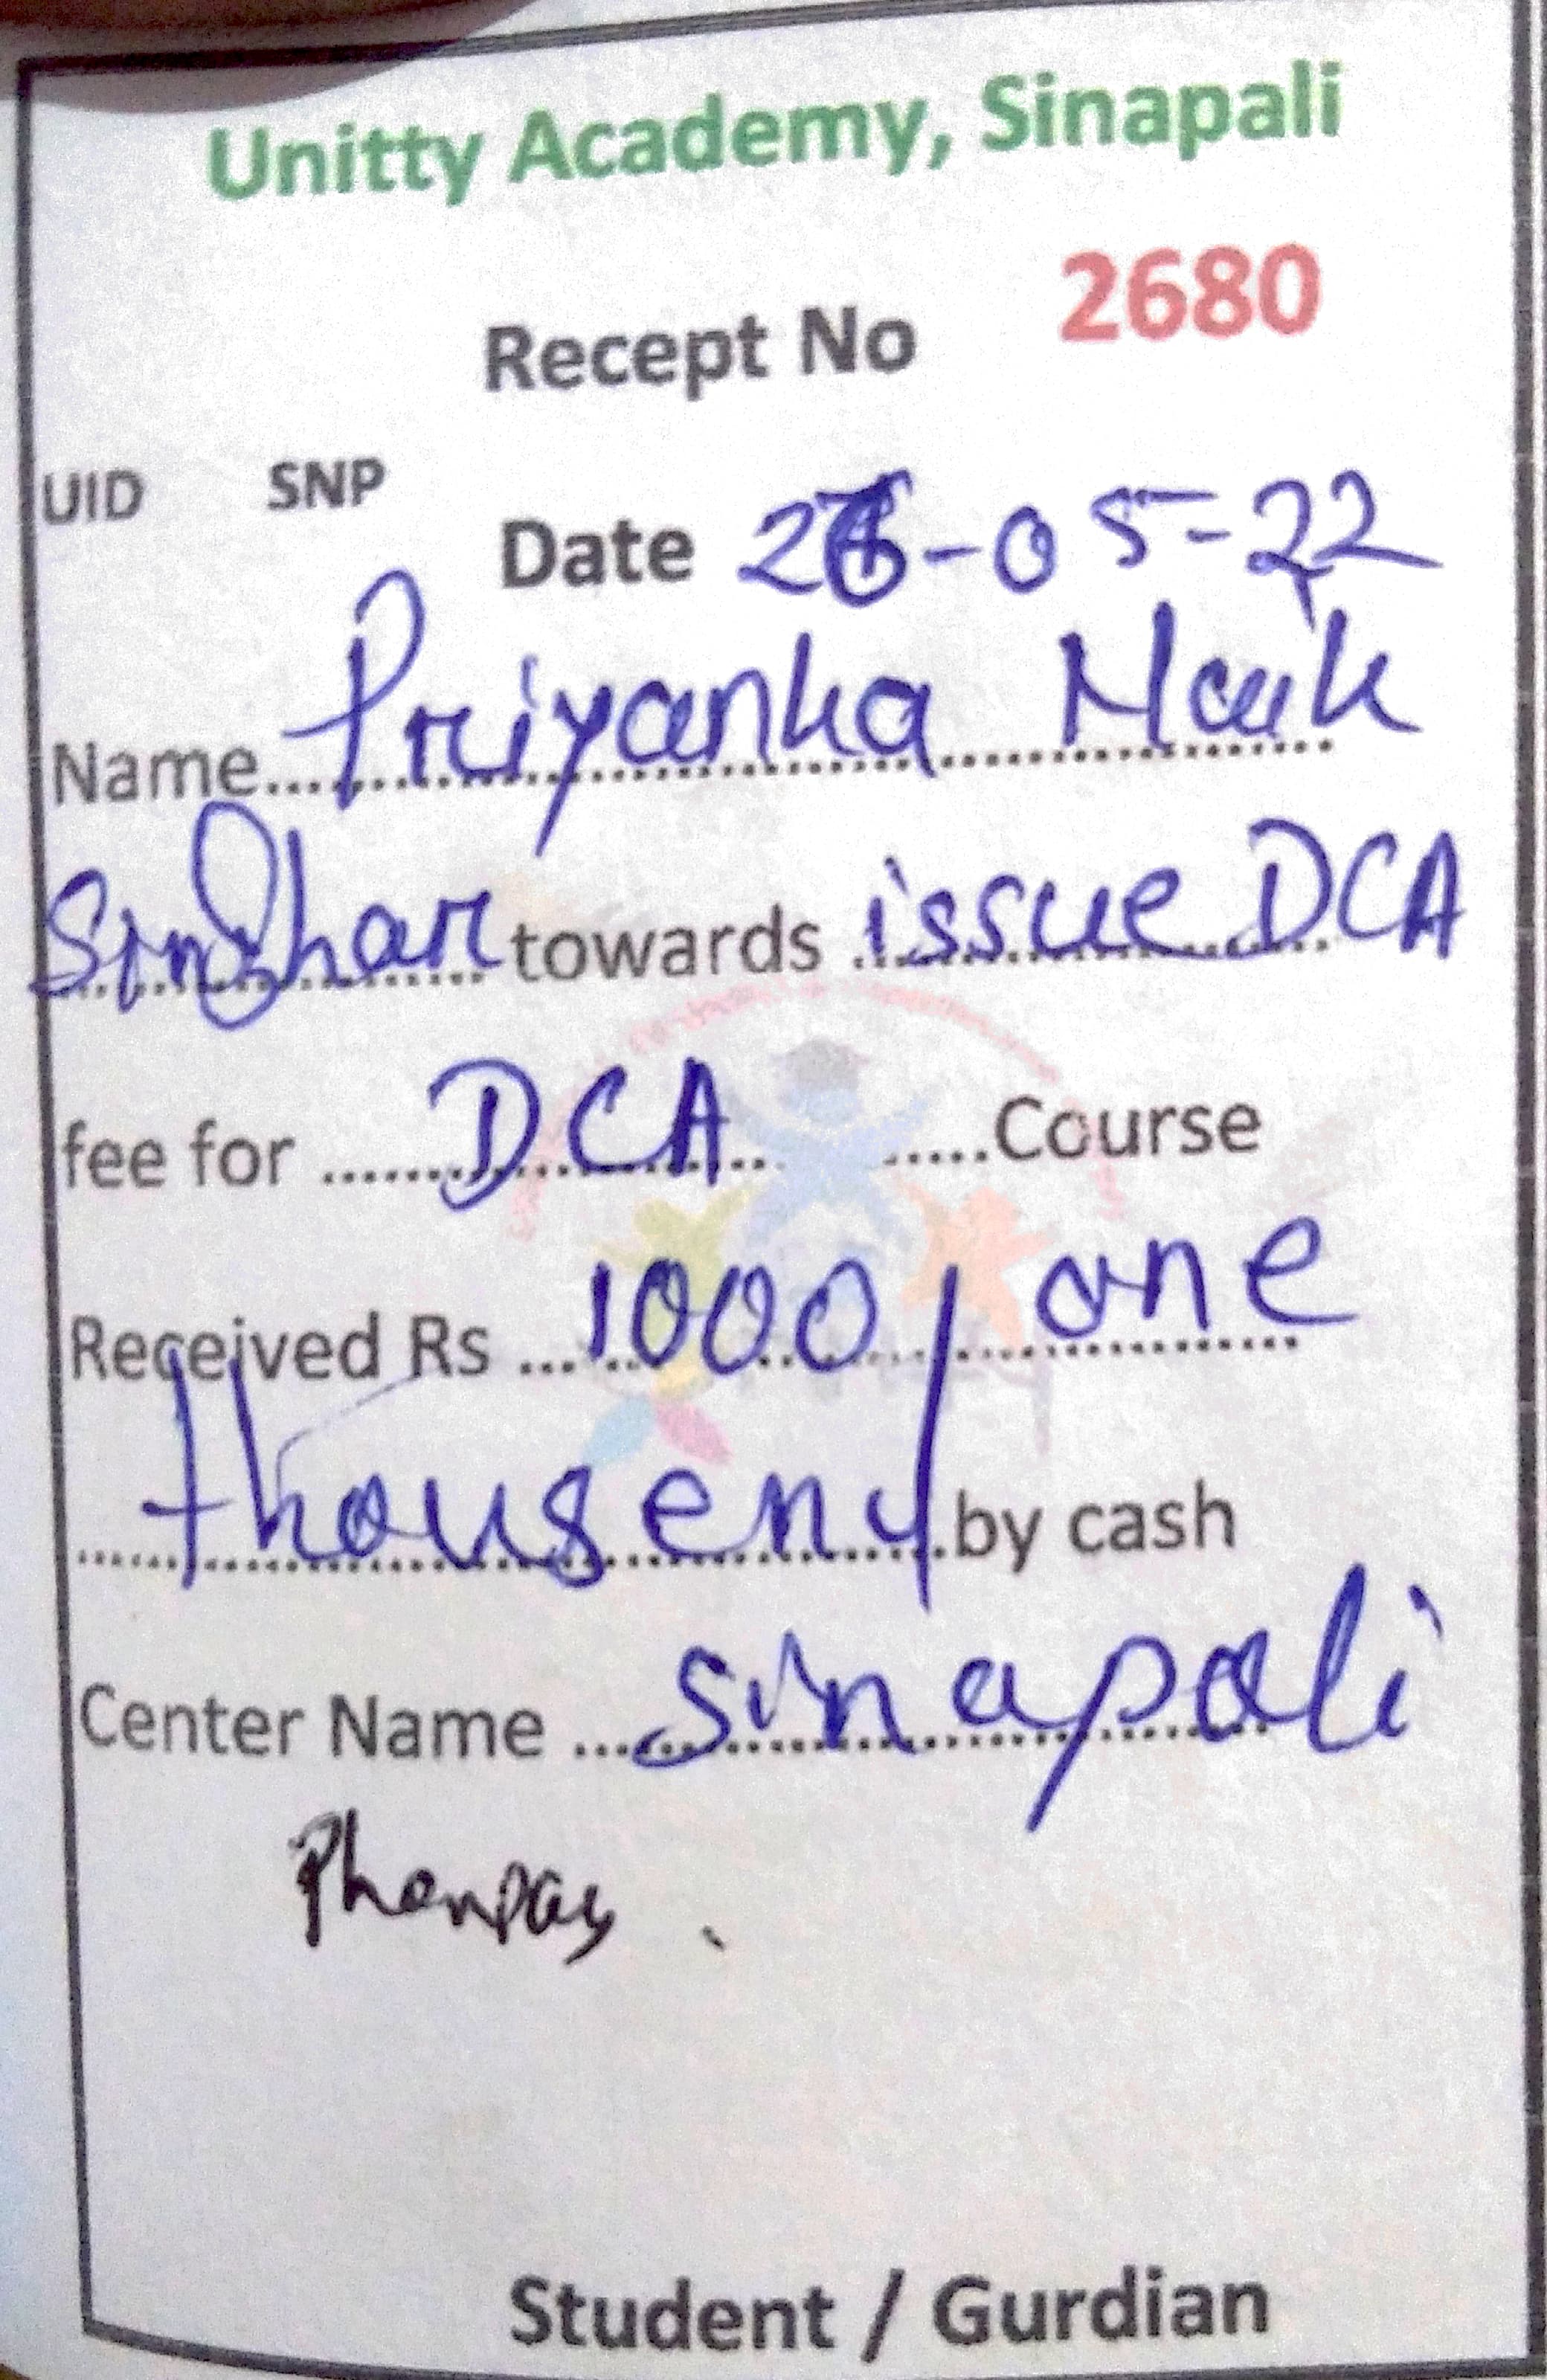 Unitty Academy, Sinapali
Recept No 2680
UID SNP
Date 26-05-22
Name Priyanka Maik
towards issue DCA
fee for DCA Course
Received Rs 1000/ one
thousend by cash
Center Name Sinapali
Phonpay.
Student / Gurdian